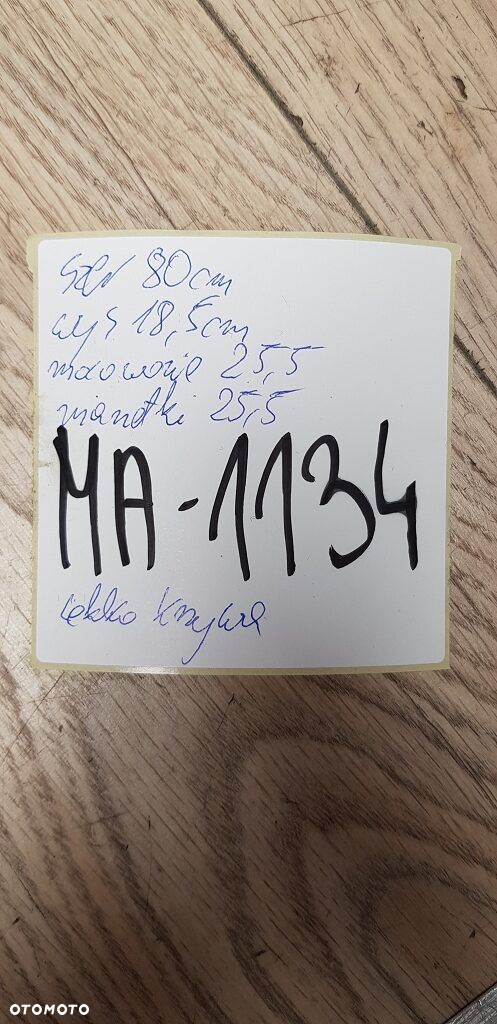 szer 80cm
wys 18,5cm
mocowanie 25,5
25,5
MA-1134
lekko krzywe
OTOMOTO